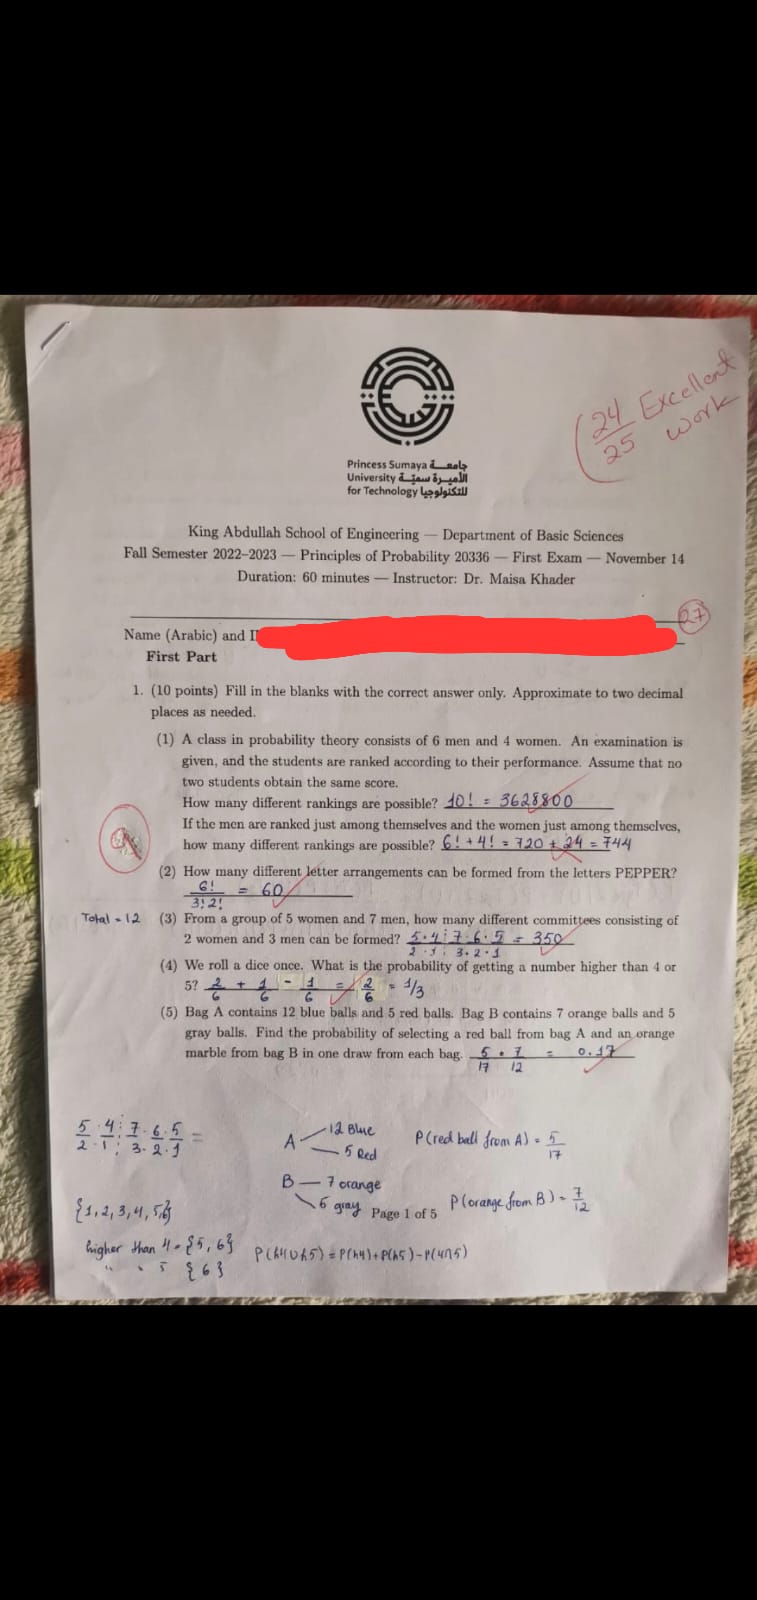 24
25
Excellent
work
Princess Sumaya جامعـــة
University الأميــرة سميّــة
for Technology للتكنولوجيا
King Abdullah School of Engineering — Department of Basic Sciences
Fall Semester 2022–2023 — Principles of Probability 20336 — First Exam — November 14
Duration: 60 minutes — Instructor: Dr. Maisa Khader
27
Name (Arabic) and I
First Part
1. (10 points) Fill in the blanks with the correct answer only. Approximate to two decimal
places as needed.
(1) A class in probability theory consists of 6 men and 4 women. An examination is
given, and the students are ranked according to their performance. Assume that no
two students obtain the same score.
How many different rankings are possible? 10! = 3628800
If the men are ranked just among themselves and the women just among themselves,
how many different rankings are possible? 6! + 4! = 720 + 24 = 744
9
(2) How many different letter arrangements can be formed from the letters PEPPER?
6! = 60
3! 2!
Total = 12
(3) From a group of 5 women and 7 men, how many different committees consisting of
2 women and 3 men can be formed? 5·4 ; 7·6·5 = 350
2·1 ; 3·2·1
(4) We roll a dice once. What is the probability of getting a number higher than 4 or
5? 2/6 + 1/6 - 1/6 = 2/6 = 1/3
(5) Bag A contains 12 blue balls and 5 red balls. Bag B contains 7 orange balls and 5
gray balls. Find the probability of selecting a red ball from bag A and an orange
marble from bag B in one draw from each bag. 5/17 · 7/12 = 0.17
5 · 4 ; 7 · 6 · 5 =
2 · 1 ; 3 · 2 · 1
A 12 Blue
5 Red
P(red ball from A) = 5/17
B 7 orange
5 gray
Page 1 of 5
P(orange from B) = 7/12
{1,2,3,4,5,6}
higher than 4 = {5,6}
" " 5 {6}
P(h4∪h5) = P(h4)+P(h5)-P(4∩5)